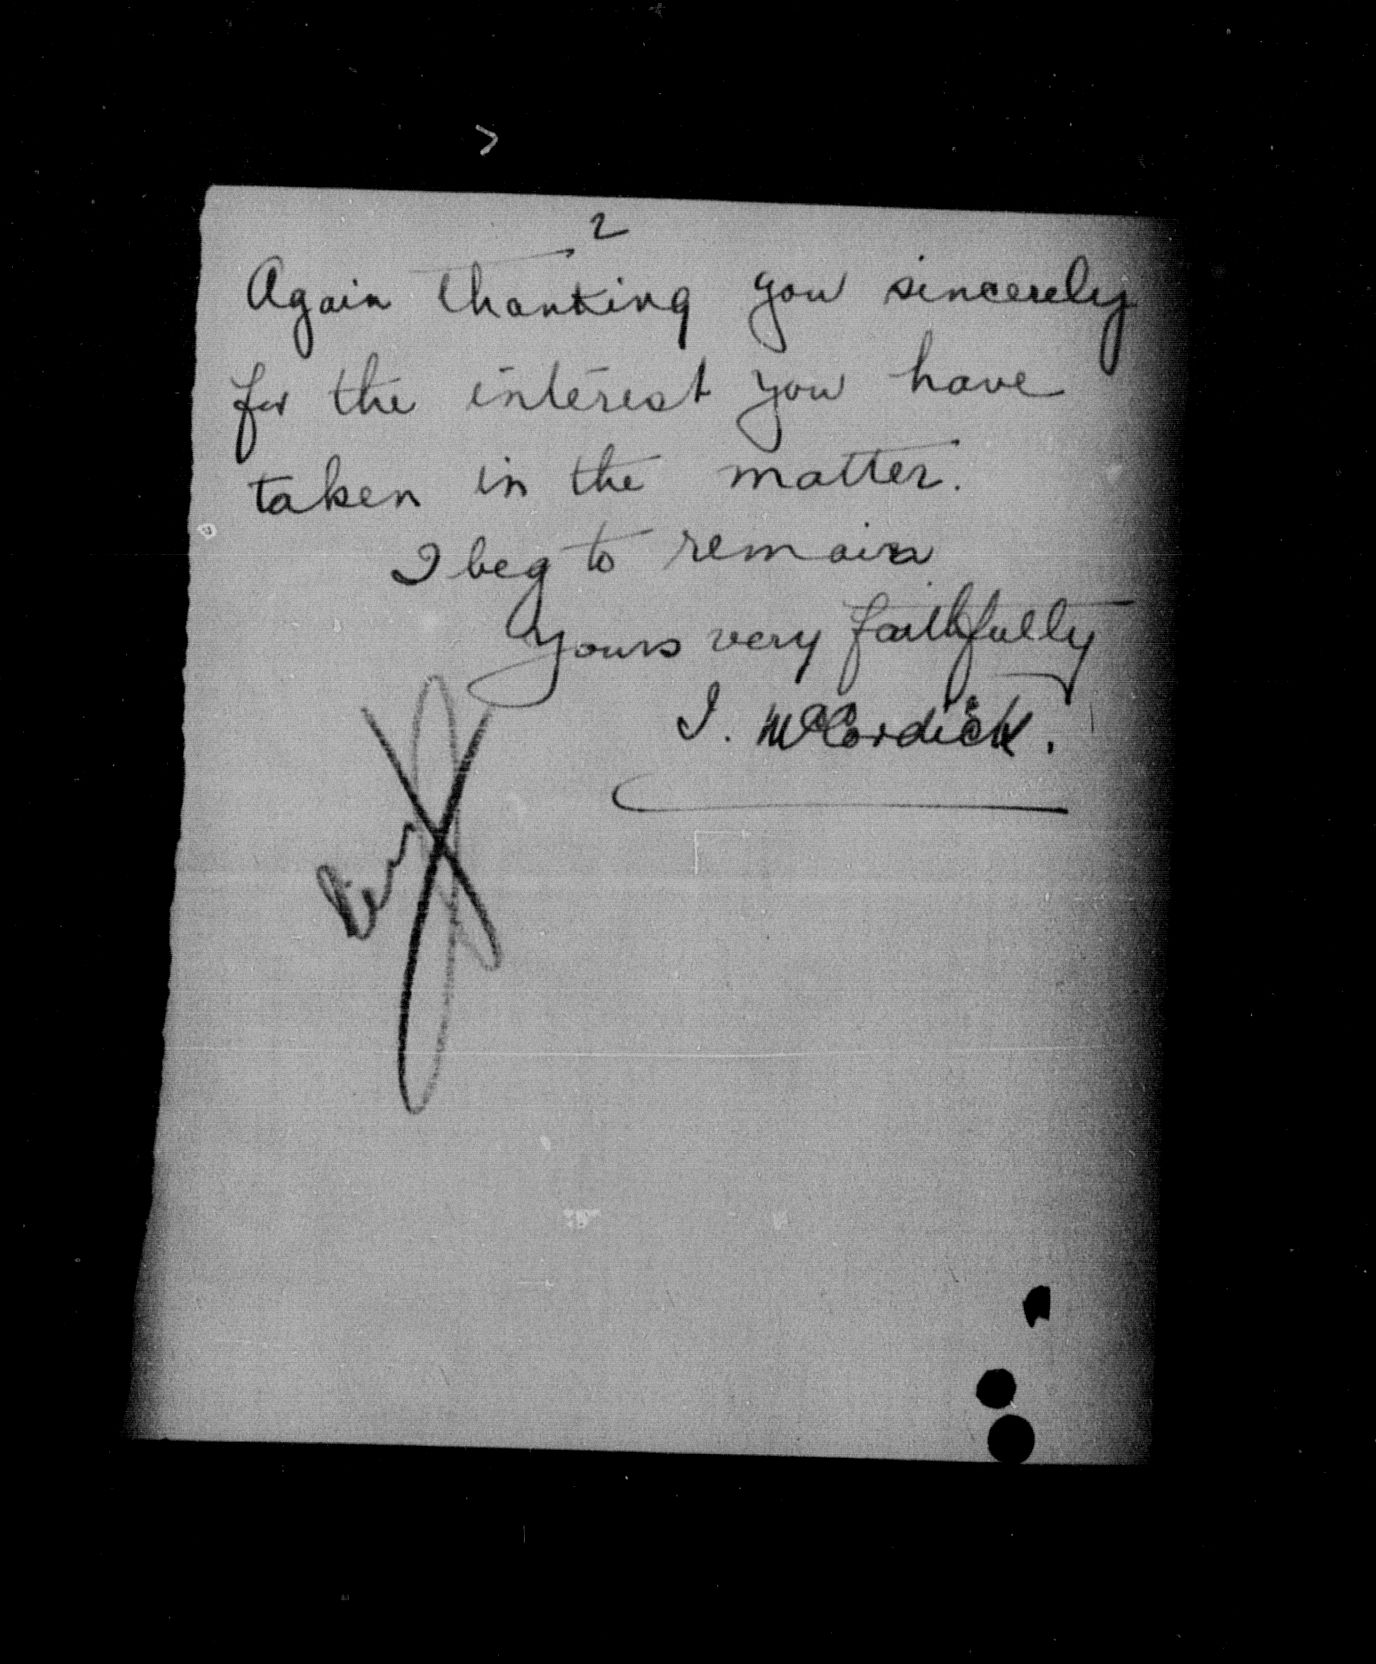 2
Again thanking you sincerely
for the interest you have
taken in the matter.
I beg to remain
Yours very faithfully
I. McCordick.